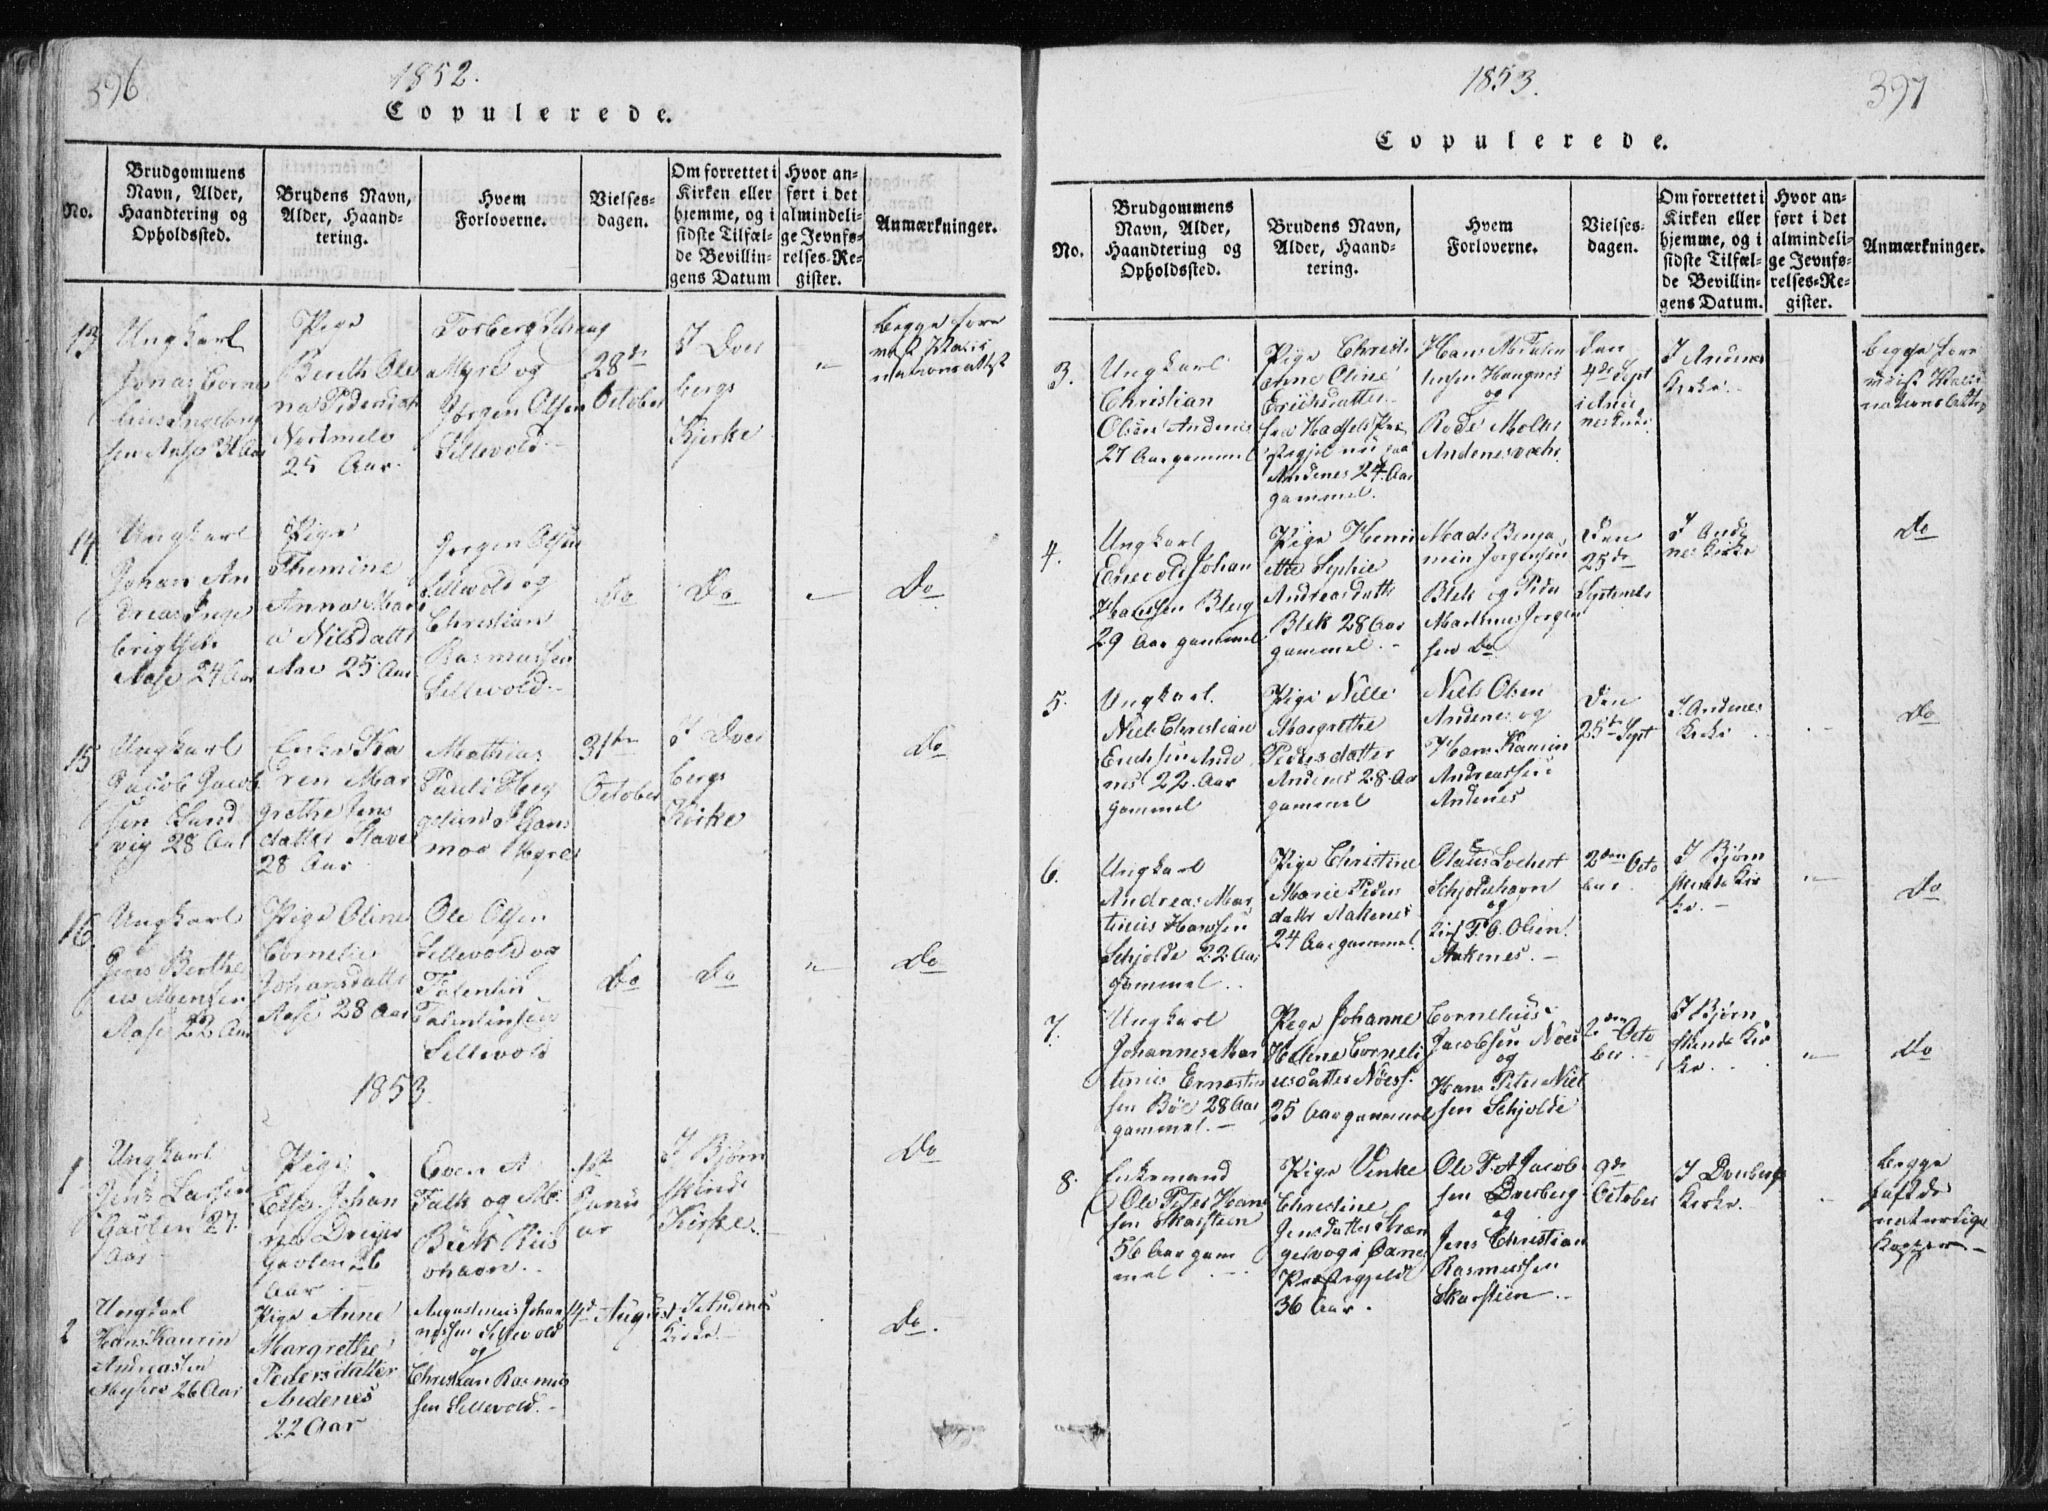 396
1852.
Copulerede.
No.
Brudgommens
Navn, Alder,
Haandtering og
Opholdssted.
Brudens Navn,
Alder, Haand-
tering.
Hvem
Forloverne.
Vielses-
dagen.
Om forrettet i
Kirken eller
hjemme, og i
sidste Tilfæl-
de Bevillin-
gens Datum
Hvor an-
ført i det
almindeli-
ge Jevnfø-
relses-Re-
gister.
Anmærkninger.
13
Ungkarl
Jonas Corne
lius Ingebrig
sen
Pige
Berth Ole
na Pedersdat
Nordmele
25 Aar.
Torberg
Myre og
Jørgen Olsen
Sellevold.
28de
October
I Dver
bergs
Kjerke
begge fore
vist
14
Ungkarl
Johan An
dreas Inge
brigtsen
Aase 24 Aar
Pige
Thumine
Anna Mari
a Nilsdattr
Aae 25 Aar
Jørgen Olsen
Sellevold og
Christian
Rasmussen
Sellevold.
Do
Do
"
Do
15
Ungkarl
Jacob Jacob
sen
vig 28 Aar
Enke Ka
ren Mar
grethe Jens
datter Stave
28 Aar
Mathias
Pauli
31te
October
I Dver
bergs
Kirke
Do
16.
Ungkarl
Jens Berthe
us
Aase 22 Aar
Pige Oline
Cornelie
Johansdattr
Aase 28 Aar
Ole Olsen
Sellevold og
Falentin
Falentinsen
Sellevold
Do
Do
"
Do
1853.
1
Ungkarl
Jens Larsen
Gavlen 27
Aar
Pige
Ellen Johan
na Dreyer
Gavlen 26
Aar
Even A
Falk og M.
Bück Riis
ohavn.
1ste
Janu
ar
I Bjørn
skinds
Kirke.
Do
2
Ungkarl
Hans Kaurin
Andreassen
26 Aar
Pige Anne
Margrethe
Pedersdatter
Andenes
22 Aar
Augustinus Johan
nessen Sellevold
og
Christian Rasmus
sen Sellevold.
14de August
I Andenes
Kirke
Do.
397
1853.
Copulerede.
No.
Brudgommens
Navn, Alder,
Haandtering og
Opholdssted.
Brudens Navn,
Alder, Haand-
tering.
Hvem
Forloverne.
Vielses-
dagen.
Om forrettet i
Kirken eller
hjemme, og i
sidste Tilfæl-
de Bevillin-
gens Datum.
Hvor an-
ført i det
almindeli-
ge Jevnfø-
relses-Re-
gister.
Anmærkninger.
3.
Ungkarl
Christian
Olsen Andenes
27 Aar gammel
Pige Christi
anne Oline
Erichsdatter
fra Hadsels Præ
stegjel nu paa
Andenes 24 Aar
gammel.
Hans M
og
Rode Molter
Andenes
Den
4de Sept
i Ande
nes Kirke
I Andenes
Kirke
begge fore
vist Vacci
nations Attes
4.
Ungkarl
Enevold Johan
Hansen Bleg
29 Aar gammel
Pige Henri
ette Sophie
Andreasdattr
Blek 28 Aar
gammel.
Mads Benja
min Jørgensen
Blek og Peder
Martinus Jørgen
sen Do
Den
25de
September
I Ande
nes Kirke
Do
5.
Ungkarl.
Niels Christian
Erichsen Ande
nes 22 Aar
gammel
Pige Nille
Margrethe
Pedersdatter
Andenes 28 Aar
gammel
Niels Olsen
Andenes og
Hans Kaurin
Andreassen
Andenes
Den
25de Sept
I Andenes
Kirke
Do
6.
Ungkarl
Andreas Mar
tinus Hanssen
Schjolde 22 Aar
gammel
Pige Christine
Marie Peders
dattr Aakenes
24 Aar gammel.
Claus Lochert
Schjoldehavn
og
P. C. Olsen
Aakenes.
2den Octo
ber
I Bjørn
skinds Kir
ke.
"
Do
7.
Ungkarl
Johannes Mar
tinus Ernestin
sen Böe 28 Aar
gammel.
Pige Johanne
Helene Corneli
usdatter Nöess.
25 Aar gammel
Cornelius
Jacobsen Nöes
og
Hans Peter Niel
sen Schjolde
2den Octo
ber
I Bjørn
skinds Kir
ke.
"
Do
8.
Enkemand
Ole Peter Hans
sen Skarstein
56 Aar gam
mel
Pige Vinke
Christine
Jensdatter
i Øxnes
Præstegjeld
36 Aar.
Ole P. A Jacob
sen Dverberg
og
Jens Christian
Rasmussen
Skarstein
9de
October
I Dverbergs
Kirke.
begge
haft de
naturlige
Kopper